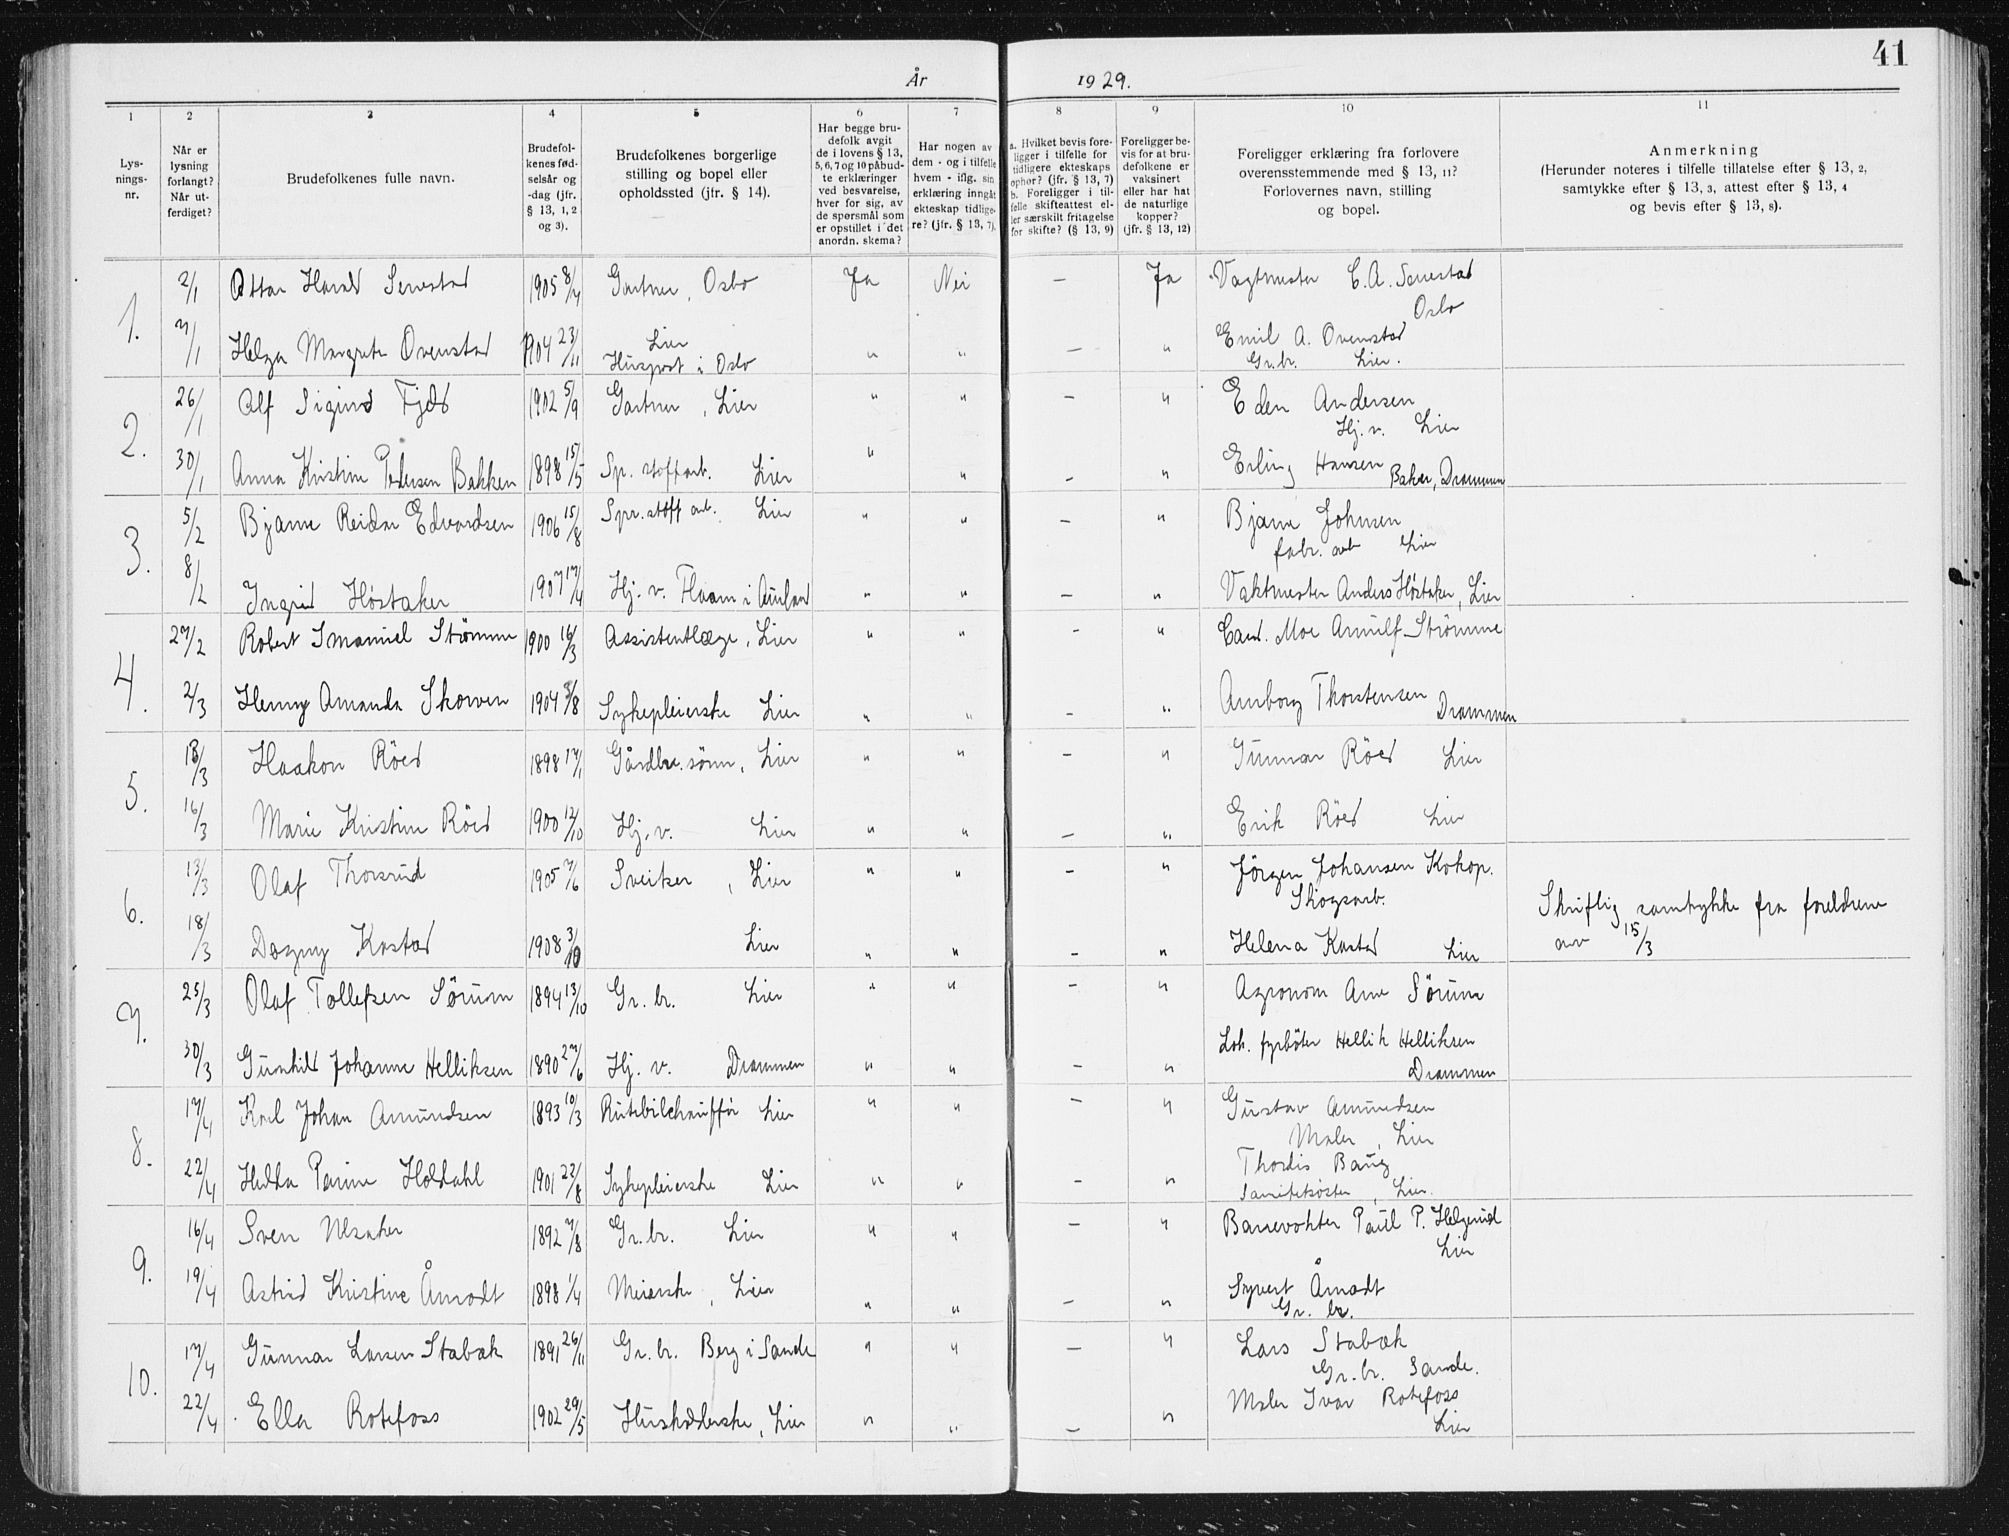 41
År 1929.
1 2 3 4 5 6 7 8 9 10 11
Lys-
nings-
nr.
Når er
lysning
forlangt?
Når ut-
ferdiget?
Brudefolkenes fulle navn.
Brudefol-
kenes fød-
selsår og
-dag (jfr.
§ 13, 1, 2
og 3).
Brudefolkenes borgerlige
stilling og bopel eller
opholdssted (jfr. § 14).
Har begge bru-
defolk avgit
de i lovens § 13,
5, 6, 7 og 10 påbud-
te erklæringer
ved besvarelse,
hver for sig, av
de spørsmål som
er opstillet i det
anordn. skema?
Har nogen av
dem - og i tilfelle
hvem - iflg. sin
erklæring inngåt
ekteskap tidlige-
re? (jfr. § 13, 7).
a. Hvilket bevis fore-
ligger i tilfelle for
tidligere ekteskaps
ophør? (jfr. § 13, 7)
b. Foreligger i til-
felle skifteattest el-
ler særskilt fritagelse
for skifte? (§ 13, 9)
Foreligger be-
vis for at bru-
defolkene er
vaksinert
eller har hat
de naturlige
kopper?
(jfr. § 13, 12)
Foreligger erklæring fra forlovere
overensstemmende med § 13, 11?
Forlovernes navn, stilling
og bopel.
Anmerkning
(Herunder noteres i tilfelle tillatelse efter § 13, 2,
samtykke efter § 13, 3, attest efter § 13, 4
og bevis efter § 13, 8).
1. 2/1 Ottar Harald Senestad 1905 8/4 Gartner, Oslo Ja Nei — Ja Vagtmester C. A. Senestad
Oslo
7/1 Helga Margrete Ovenstad 1904 23/11 Lier
Huspost i Oslo " " — " Emil A. Ovenstad
Gr.br. Lier.
2. 26/1 Alf Sigurd Fjeld 1902 5/9 Gartner, Lier " " — " Eden Andersen
Hj. v. Lier
30/1 Anna Kristine Pedersen Bakken 1898 15/5 Sp. stoffarb. Lier " " — " Erling Hansen
Baker, Drammen
3. 5/2 Bjarne Reidar Edvardsen 1906 15/8 Spr. stoff arb. Lier " " — " Bjarne Johnsen
fabr. arb Lier
8/2 Ingrid Høstaker 1907 17/4 Hj. v. Flaam i Aurland " " — " Vaktmester Anders Høstaker, Lier
4. 27/2 Robert Imanuel Strømme 1900 16/3 Assistentlæge, Lier " " — " Cand. Moe Arnulf Strömme
2/3 Henny Amanda Skorven 1904 3/8 Sykepleierske Lier " " — " Aarborg Thorstensen
Drammen
5. 13/3 Haakon Röed 1898 17/1 Gårdbr. sönn, Lier " " — " Gunnar Röed Lier
16/3 Marie Kristine Röed 1900 12/10 Hj. v. Lier " " — " Erik Röed Lier
6. 13/3 Olaf Thorsrud 1905 7/6 Sveitser, Lier " " — " Jörgen Johansen Kokop.
Skogsarb.
18/3 Dagny Kastad 1908 3/10 Lier " " — " Helena Kastad Lier
Skriftlig samtykke fra foreldrene
av 15/3
7. 25/3 Olaf Tollefsen Sörum 1894 13/10 Gr. br. Lier " " — " Agronom Arne Sörum
30/3 Gunhild Johanne Helliksen 1890 27/6 Hj. v. Drammen " " — " Lok. fyrböter Hellik Helliksen
Drammen
8. 17/4 Karl Johan Amundsen 1893 10/3 Rutebilchauffør Lier " " — " Gustav Amundsen
Maler, Lier
22/4 Hulda Perine Holdahl 1901 22/8 Sykepleierske Lier " " — " Thordis Baug
Sanitetsöster, Lier.
9. 16/4 Sven Ulsaker 1892 7/8 Gr. br. Lier " " — " Banevokter Paul P. Helgerud
Lier
19/4 Astrid Kristine Åmodt 1898 1/4 Meierske, Lier " " — " Syvert Åmodt
Gr. br.
10. 17/4 Gunnar Larsen Stabæk 1891 26/11 Gr. br. Berg i Sande " " — " Lars Stabæk
Gr. br. Sande.
22/4 Ella Rotefoss 1902 29/5 Husholderske, Lier " " — " Maler Ivar Rotefoss
Lier